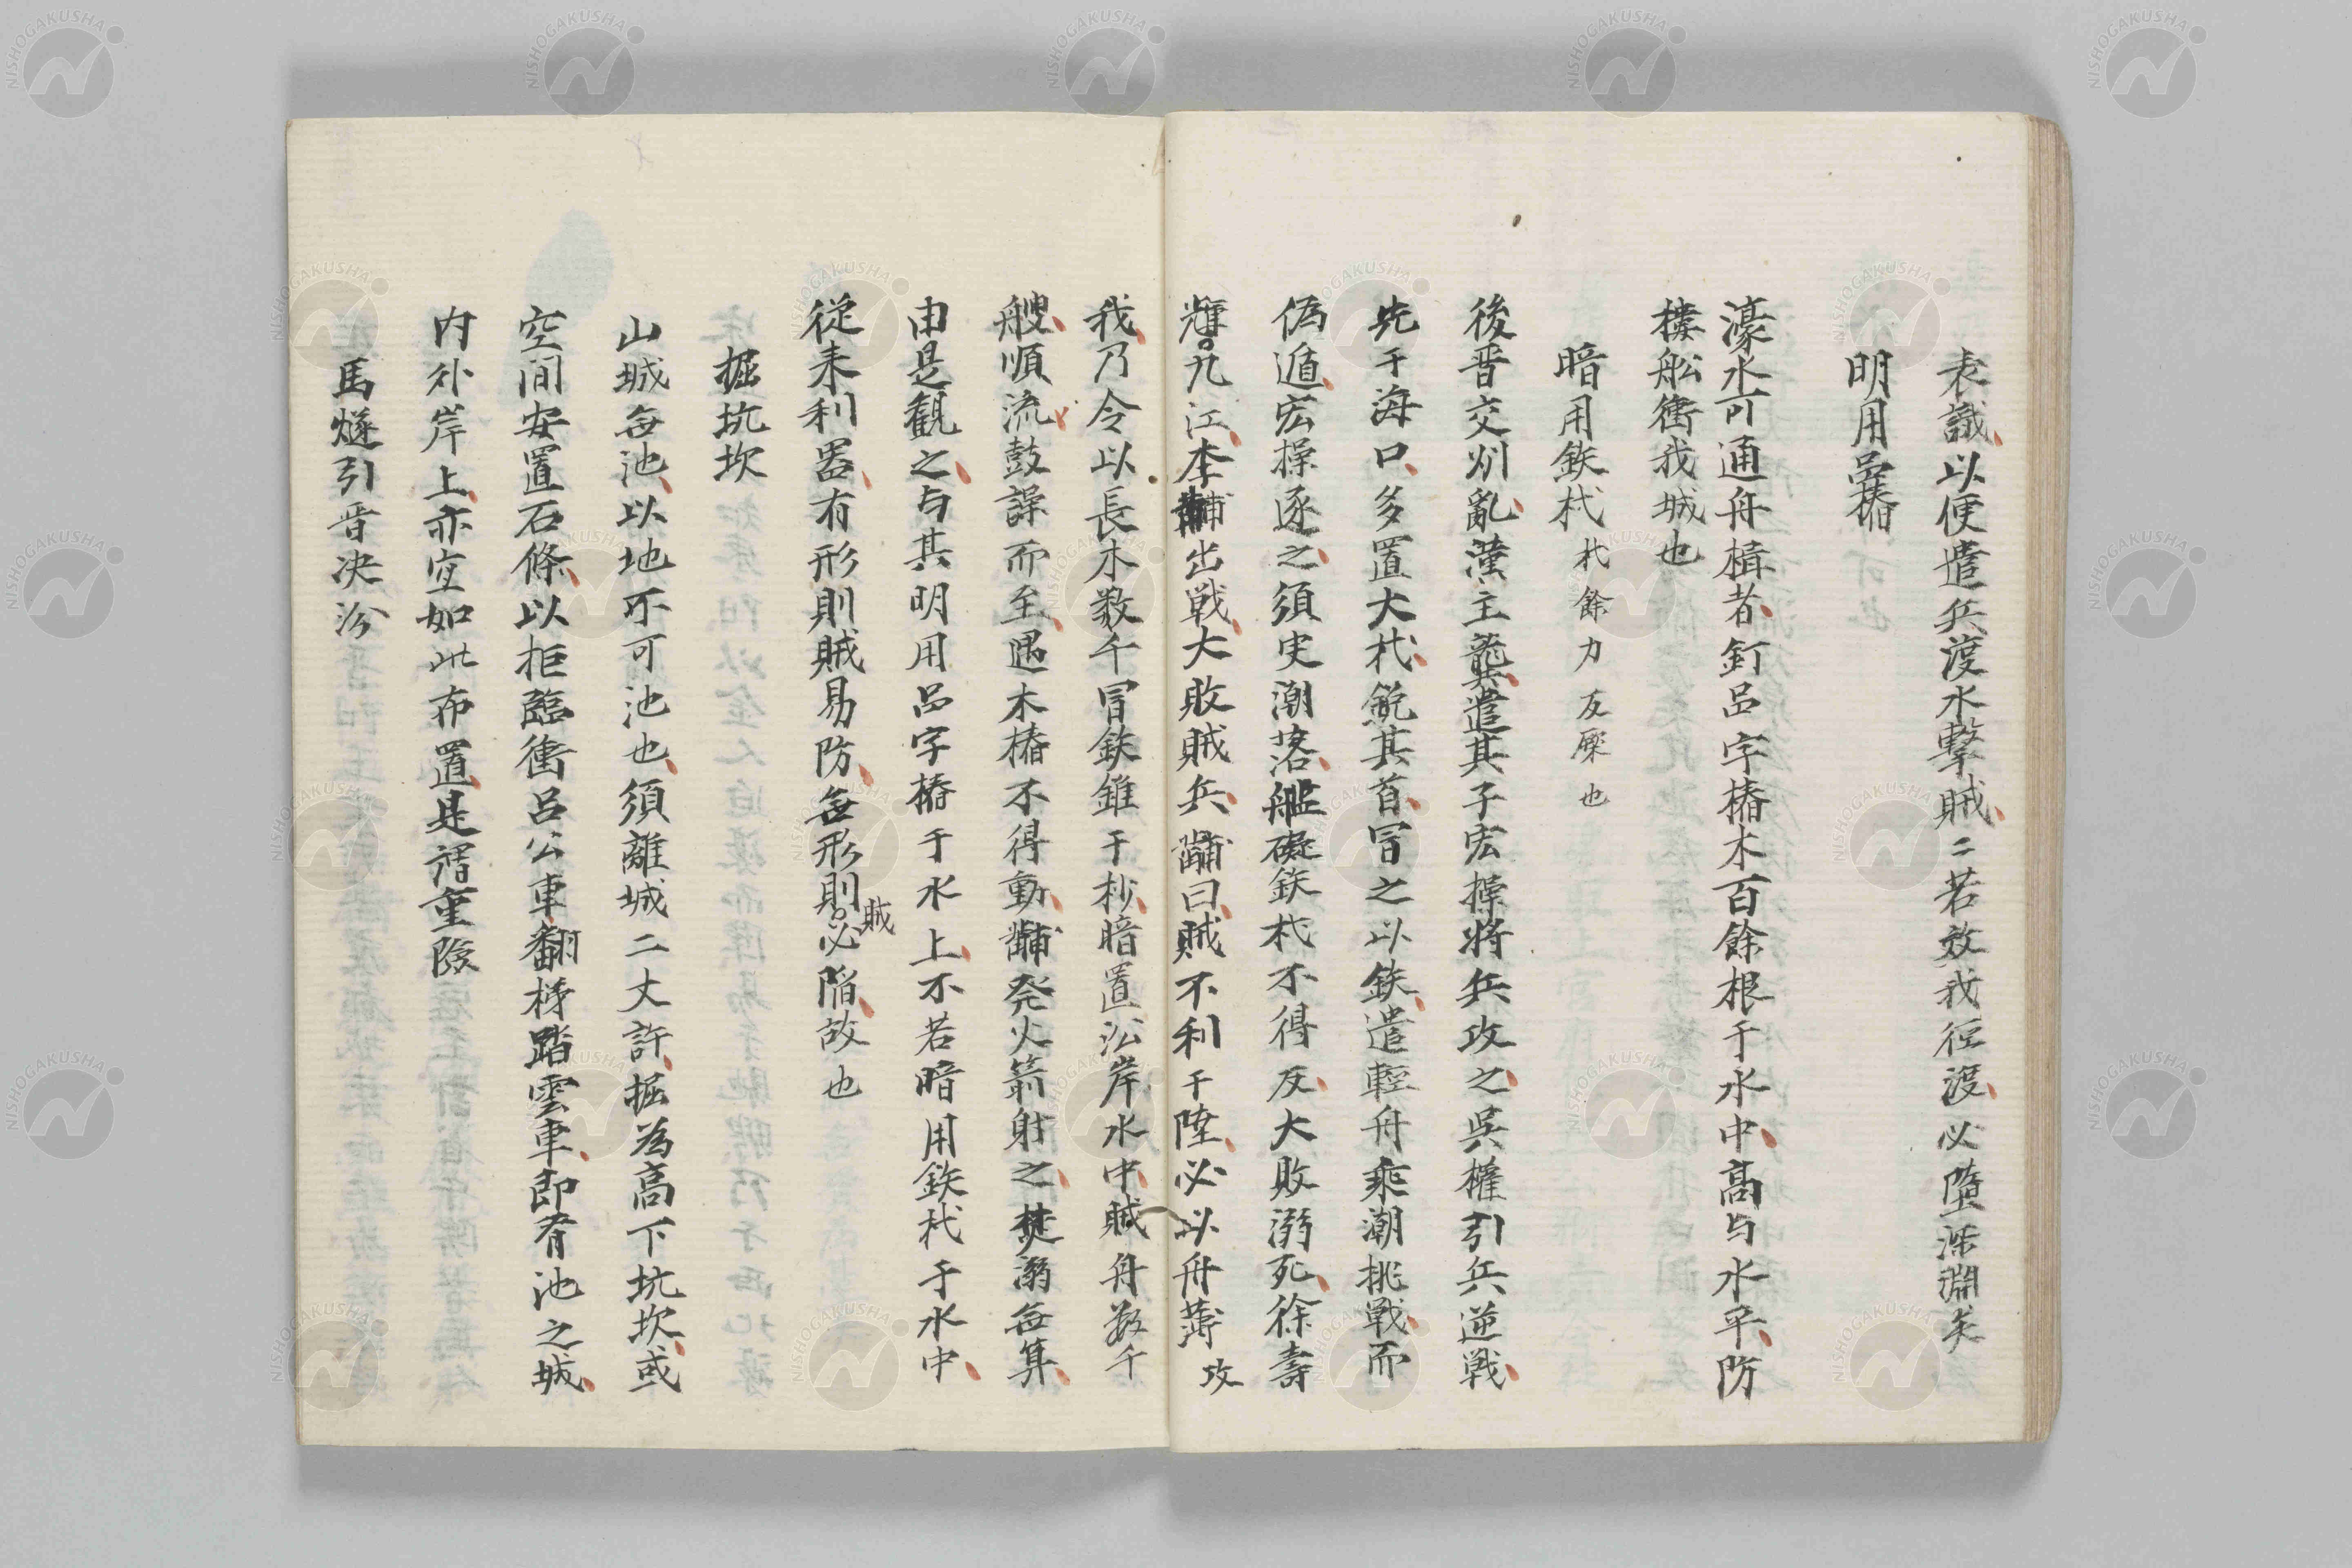 表識以便遣兵渡水擊賊二若效我徑渡必墮深淵矣
明用品椿
濠水可通舟楫者釘品字椿木百餘根于水中高与水平防
樓船衝我城也
暗用鉄杙 杙餘力反橜也
後晋交州亂漢主龔遣其子宏操將兵攻之吳權引兵逆戦
先于海口多置大杙銳其首冒之以鉄遣輕舟乘潮挑戦而
偽遁宏操逐之須臾潮落艦礙鉄杙不得反大敗溺死徐壽
輝九江李黼出戦大敗賊兵黼曰賊不利于陸必以舟薄攻
我乃令以長木数千冒鉄錐于杪暗置沿岸水中賊舟数千
艘順流鼓譟而至遇木椿不得動黼発火箭射之焚溺無算
由是観之与其明用品字椿于水上不若暗用鉄杙于水中
從来利器有形則賊易防無形則賊必陥故也
掘坑坎
山城無池以地不可池也須離城二丈許掘為高下坑坎或
空间安置石條以拒臨衝呂公車翻梯踏雲車即有池之城
内外岸上亦宜如此布置是謂重險
馬燧引晋决汾
NISHOGAKUSHA